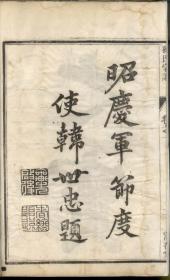 昭慶軍節度
使韓世忠題